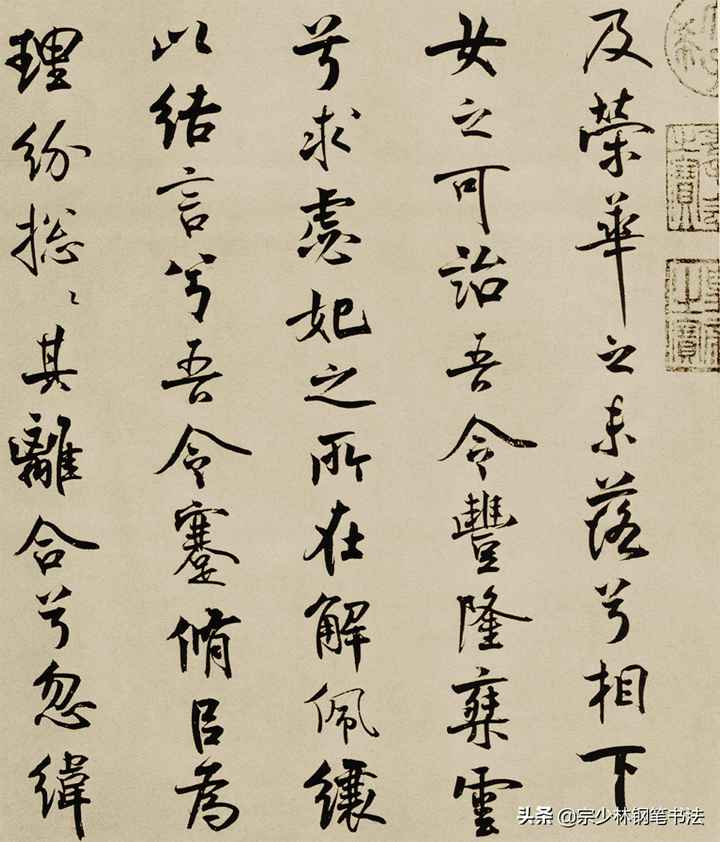 及榮華之未落兮相下
女之可詒吾令豐隆椉雲
兮求虙妃之所在解佩纕
以結言兮吾令蹇脩㠯為
理紛揔〻其離合兮忽緯
头条 @宗少林钢笔书法